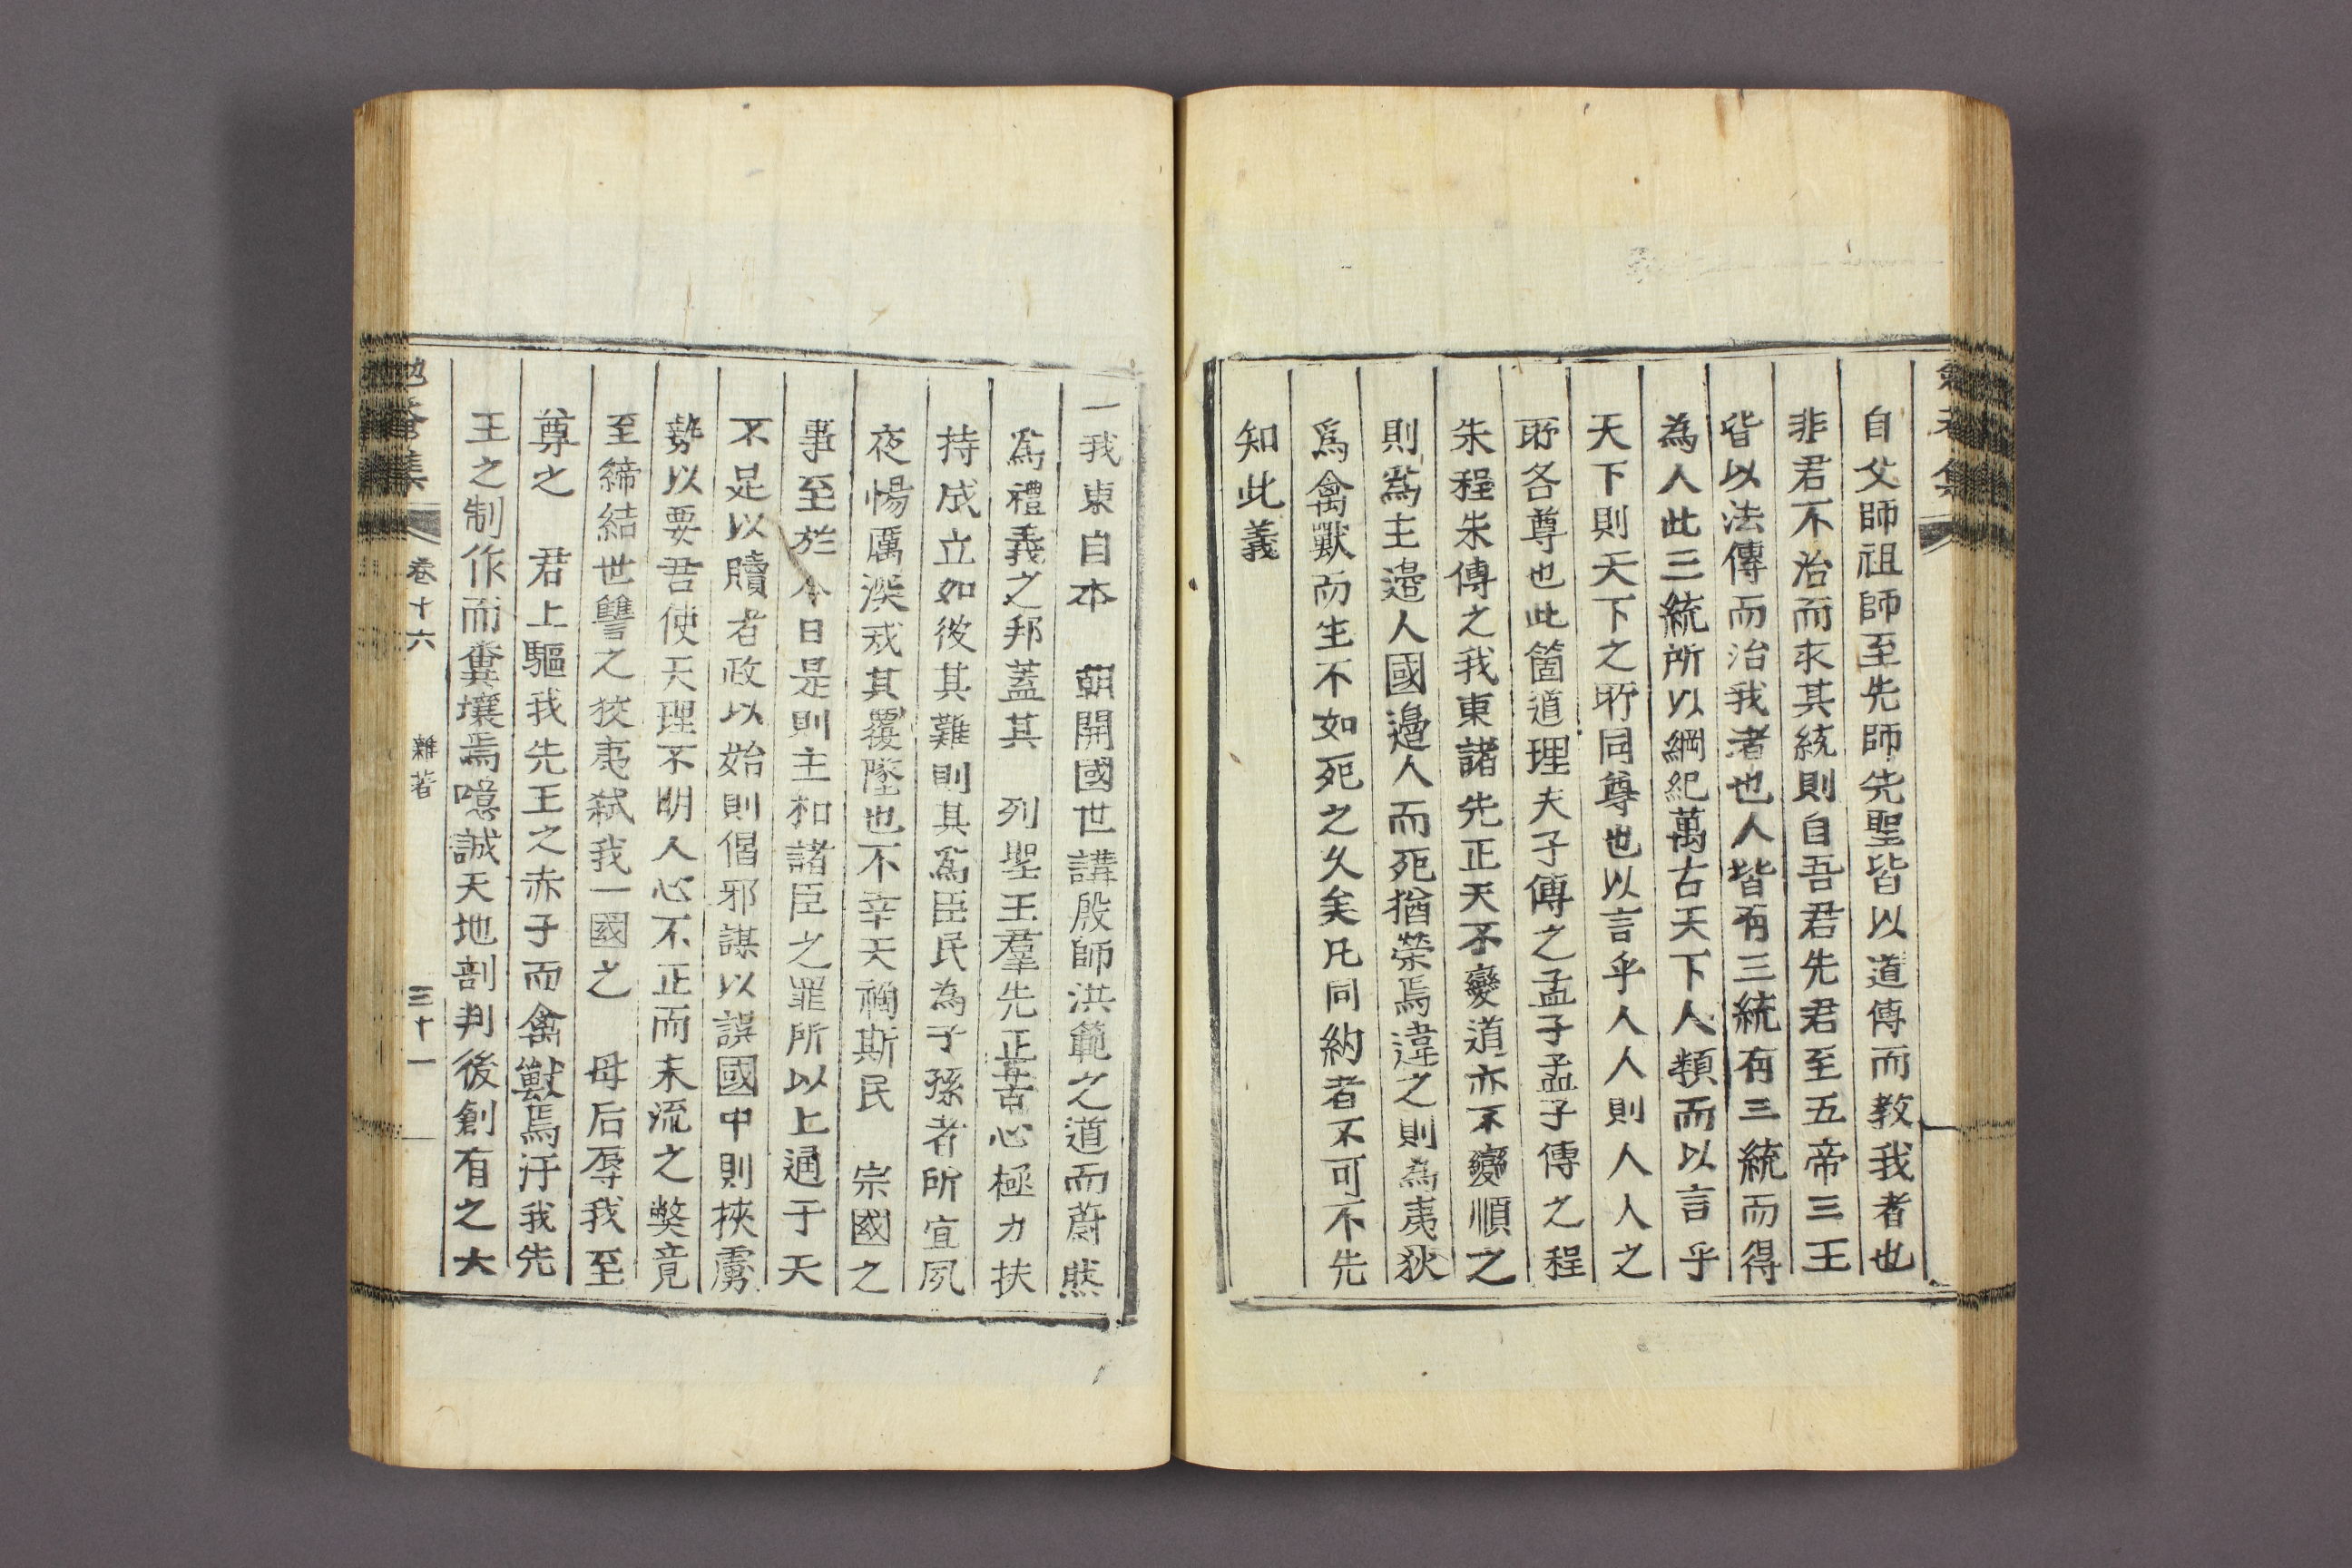 自父師祖師至先師先聖皆以道傳而教我者也
非君不治而求其統則自吾君先君至五帝三王
皆以法傳而治我者也人皆有三統有三統而得
為人此三統所以綱紀萬古天下人類而以言乎
天下則天下之所同尊也以言乎人人則人人之
所各尊也此箇道理夫子傳之孟子孟子傳之程
朱程朱傳之我東諸先正天不變道亦不變順之
則爲主邉人國邉人而死猶榮焉違之則為夷狄
爲禽獸而生不如死之久矣凡同約者不可不先
知此義
一我東自本 朝開國世講殷師洪範之道而蔚然
爲禮義之邦蓋其 列聖王羣先正苦心極力扶
持成立如彼其難則其爲臣民為子孫者所宜夙
夜惕厲深戒其覆墜也不幸天禍斯民 宗國之
事至於今日是則主和諸臣之罪所以上通于天
不足以贖者政以始則倡邪謀以誤國中則挾虜
勢以要吾使天理不明人心不正而末流之獘竟
至締結世讐之狡夷弑我一國之 母后辱我至
尊之 君上驅我先王之赤子而禽獸焉汙我先
王之制作而糞壤焉噫誠天地剖判後創有之大
卷十六 雜著 三十一